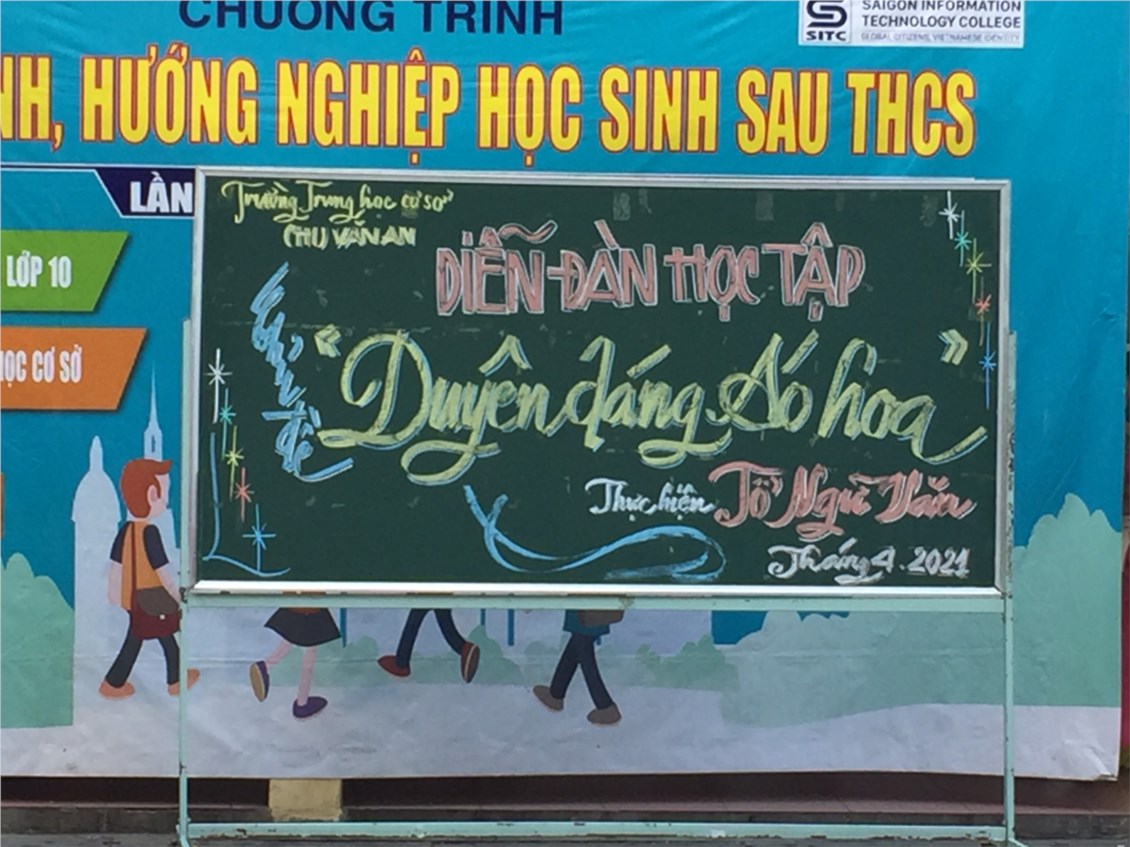 CHƯƠNG TRÌNH
SITC
SAIGON INFORMATION
TECHNOLOGY COLLEGE
GLOBAL CITIZENS, VIETNAMESE IDENTITY
NH, HƯỚNG NGHIỆP HỌC SINH SAU THCS
LẦN
LỚP 10
HỌC CƠ SỞ
Trường Trung học cơ sở
CHU VĂN AN
DIỄN ĐÀN HỌC TẬP
Chuyên đề
“Duyên dáng Áó hoa”
Thực hiện Tổ Ngữ Văn
Tháng 4.2021